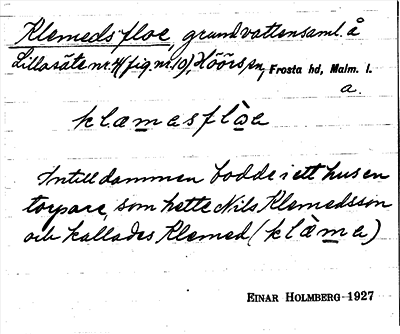 Klemeds floe, grundvattensaml. å
Lillasäte nr. 4 (fig. nr. 10), Höörs sn, Frosta hd, Malm. l.
a.
klæmasflòa
Intill dammen bodde i ett hus en
torpare, som hette Nils Klemedsson
och kallades Klemed (klæ̀ma)
EINAR HOLMBERG 1927